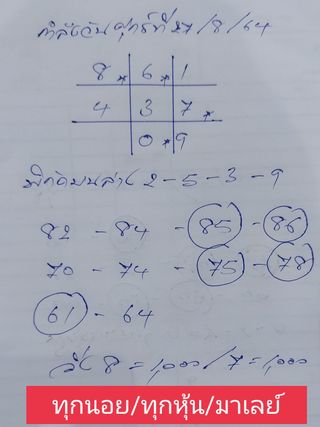 กำลังวันศุกร์ที่ 27/8/64
8* 6* 1
4 3 7*
0* 9
พิกัดบนล่าง 2-5-3-9
82 - 84 - 85 - 86
70 - 74 - 75 - 78
61 - 64
วิ่ง 8 = 1,000 / 7 = 1,000
ทุกนอย/ทุกหุ้น/มาเลย์